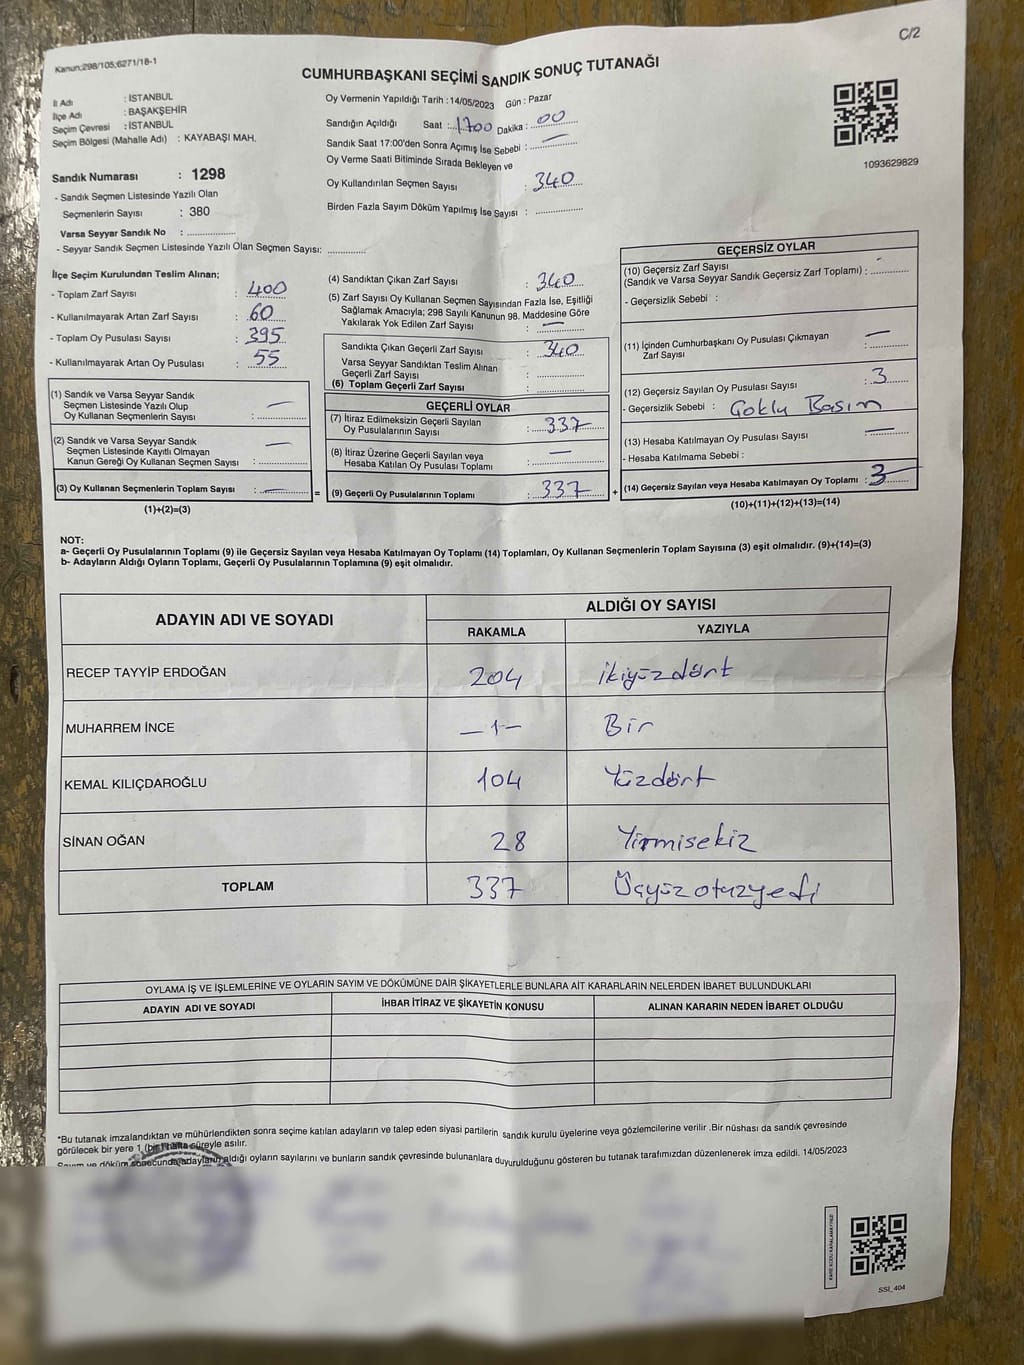 C/2
Kanun:298/105;6271/18-1
CUMHURBAŞKANI SEÇİMİ SANDIK SONUÇ TUTANAĞI
İl Adı : İSTANBUL
İlçe Adı : BAŞAKŞEHİR
Seçim Çevresi : İSTANBUL
Seçim Bölgesi (Mahalle Adı) : KAYABAŞI MAH.
Sandık Numarası : 1298
- Sandık Seçmen Listesinde Yazılı Olan
Seçmenlerin Sayısı : 380
Varsa Seyyar Sandık No :
- Seyyar Sandık Seçmen Listesinde Yazılı Olan Seçmen Sayısı:
Oy Vermenin Yapıldığı Tarih : 14/05/2023 Gün : Pazar
Sandığın Açıldığı Saat : 1700 Dakika : 00
Sandık Saat 17:00'den Sonra Açımış İse Sebebi : —
Oy Verme Saati Bitiminde Sırada Bekleyen ve
Oy Kullandırılan Seçmen Sayısı : 340
Birden Fazla Sayım Döküm Yapılmış İse Sayısı :
1093629829
İlçe Seçim Kurulundan Teslim Alınan;
- Toplam Zarf Sayısı : 400
- Kullanılmayarak Artan Zarf Sayısı : 60
- Toplam Oy Pusulası Sayısı : 395
- Kullanılmayarak Artan Oy Pusulası : 55
(1) Sandık ve Varsa Seyyar Sandık
Seçmen Listesinde Yazılı Olup
Oy Kullanan Seçmenlerin Sayısı : —
(2) Sandık ve Varsa Seyyar Sandık
Seçmen Listesinde Kayıtlı Olmayan
Kanun Gereği Oy Kullanan Seçmen Sayısı : —
(3) Oy Kullanan Seçmenlerin Toplam Sayısı : —
(1)+(2)=(3)
(4) Sandıktan Çıkan Zarf Sayısı : 340
(5) Zarf Sayısı Oy Kullanan Seçmen Sayısından Fazla İse, Eşitliği
Sağlamak Amacıyla; 298 Sayılı Kanunun 98. Maddesine Göre
Yakılarak Yok Edilen Zarf Sayısı : —
Sandıkta Çıkan Geçerli Zarf Sayısı : 340
Varsa Seyyar Sandıktan Teslim Alınan
Geçerli Zarf Sayısı :
(6) Toplam Geçerli Zarf Sayısı :
GEÇERLİ OYLAR
(7) İtiraz Edilmeksizin Geçerli Sayılan
Oy Pusulalarının Sayısı : 337
(8) İtiraz Üzerine Geçerli Sayılan veya
Hesaba Katılan Oy Pusulası Toplamı : —
= (9) Geçerli Oy Pusulalarının Toplamı : 337 +
GEÇERSİZ OYLAR
(10) Geçersiz Zarf Sayısı
(Sandık ve Varsa Seyyar Sandık Geçersiz Zarf Toplamı) :
- Geçersizlik Sebebi :
(11) İçinden Cumhurbaşkanı Oy Pusulası Çıkmayan
Zarf Sayısı : —
(12) Geçersiz Sayılan Oy Pusulası Sayısı : 3
- Geçersizlik Sebebi : Goklu Basım
(13) Hesaba Katılmayan Oy Pusulası Sayısı : —
- Hesaba Katılmama Sebebi :
(14) Geçersiz Sayılan veya Hesaba Katılmayan Oy Toplamı : 3
(10)+(11)+(12)+(13)=(14)
NOT:
a- Geçerli Oy Pusulalarının Toplamı (9) ile Geçersiz Sayılan veya Hesaba Katılmayan Oy Toplamı (14) Toplamları, Oy Kullanan Seçmenlerin Toplam Sayısına (3) eşit olmalıdır. (9)+(14)=(3)
b- Adayların Aldığı Oyların Toplamı, Geçerli Oy Pusulalarının Toplamına (9) eşit olmalıdır.
ADAYIN ADI VE SOYADI
ALDIĞI OY SAYISI
RAKAMLA YAZIYLA
RECEP TAYYİP ERDOĞAN 204 ikiyüzdört
MUHARREM İNCE —1— Bir
KEMAL KILIÇDAROĞLU 104 Yüzdört
SİNAN OĞAN 28 Yirmisekiz
TOPLAM 337 Üçyüzotuzyedi
OYLAMA İŞ VE İŞLEMLERİNE VE OYLARIN SAYIM VE DÖKÜMÜNE DAİR ŞİKAYETLERLE BUNLARA AİT KARARLARIN NELERDEN İBARET BULUNDUKLARI
ADAYIN ADI VE SOYADI İHBAR İTİRAZ VE ŞİKAYETİN KONUSU ALINAN KARARIN NEDEN İBARET OLDUĞU
*Bu tutanak imzalandıktan ve mühürlendikten sonra seçime katılan adayların ve talep eden siyasi partilerin sandık kurulu üyelerine veya gözlemcilerine verilir .Bir nüshası da sandık çevresinde
görülecek bir yere 1 (bir) hafta süreyle asılır.
Sayım ve döküm sonucunda adayların aldığı oyların sayılarını ve bunların sandık çevresinde bulunanlara duyurulduğunu gösteren bu tutanak tarafımızdan düzenlenerek imza edildi. 14/05/2023
SSI_404